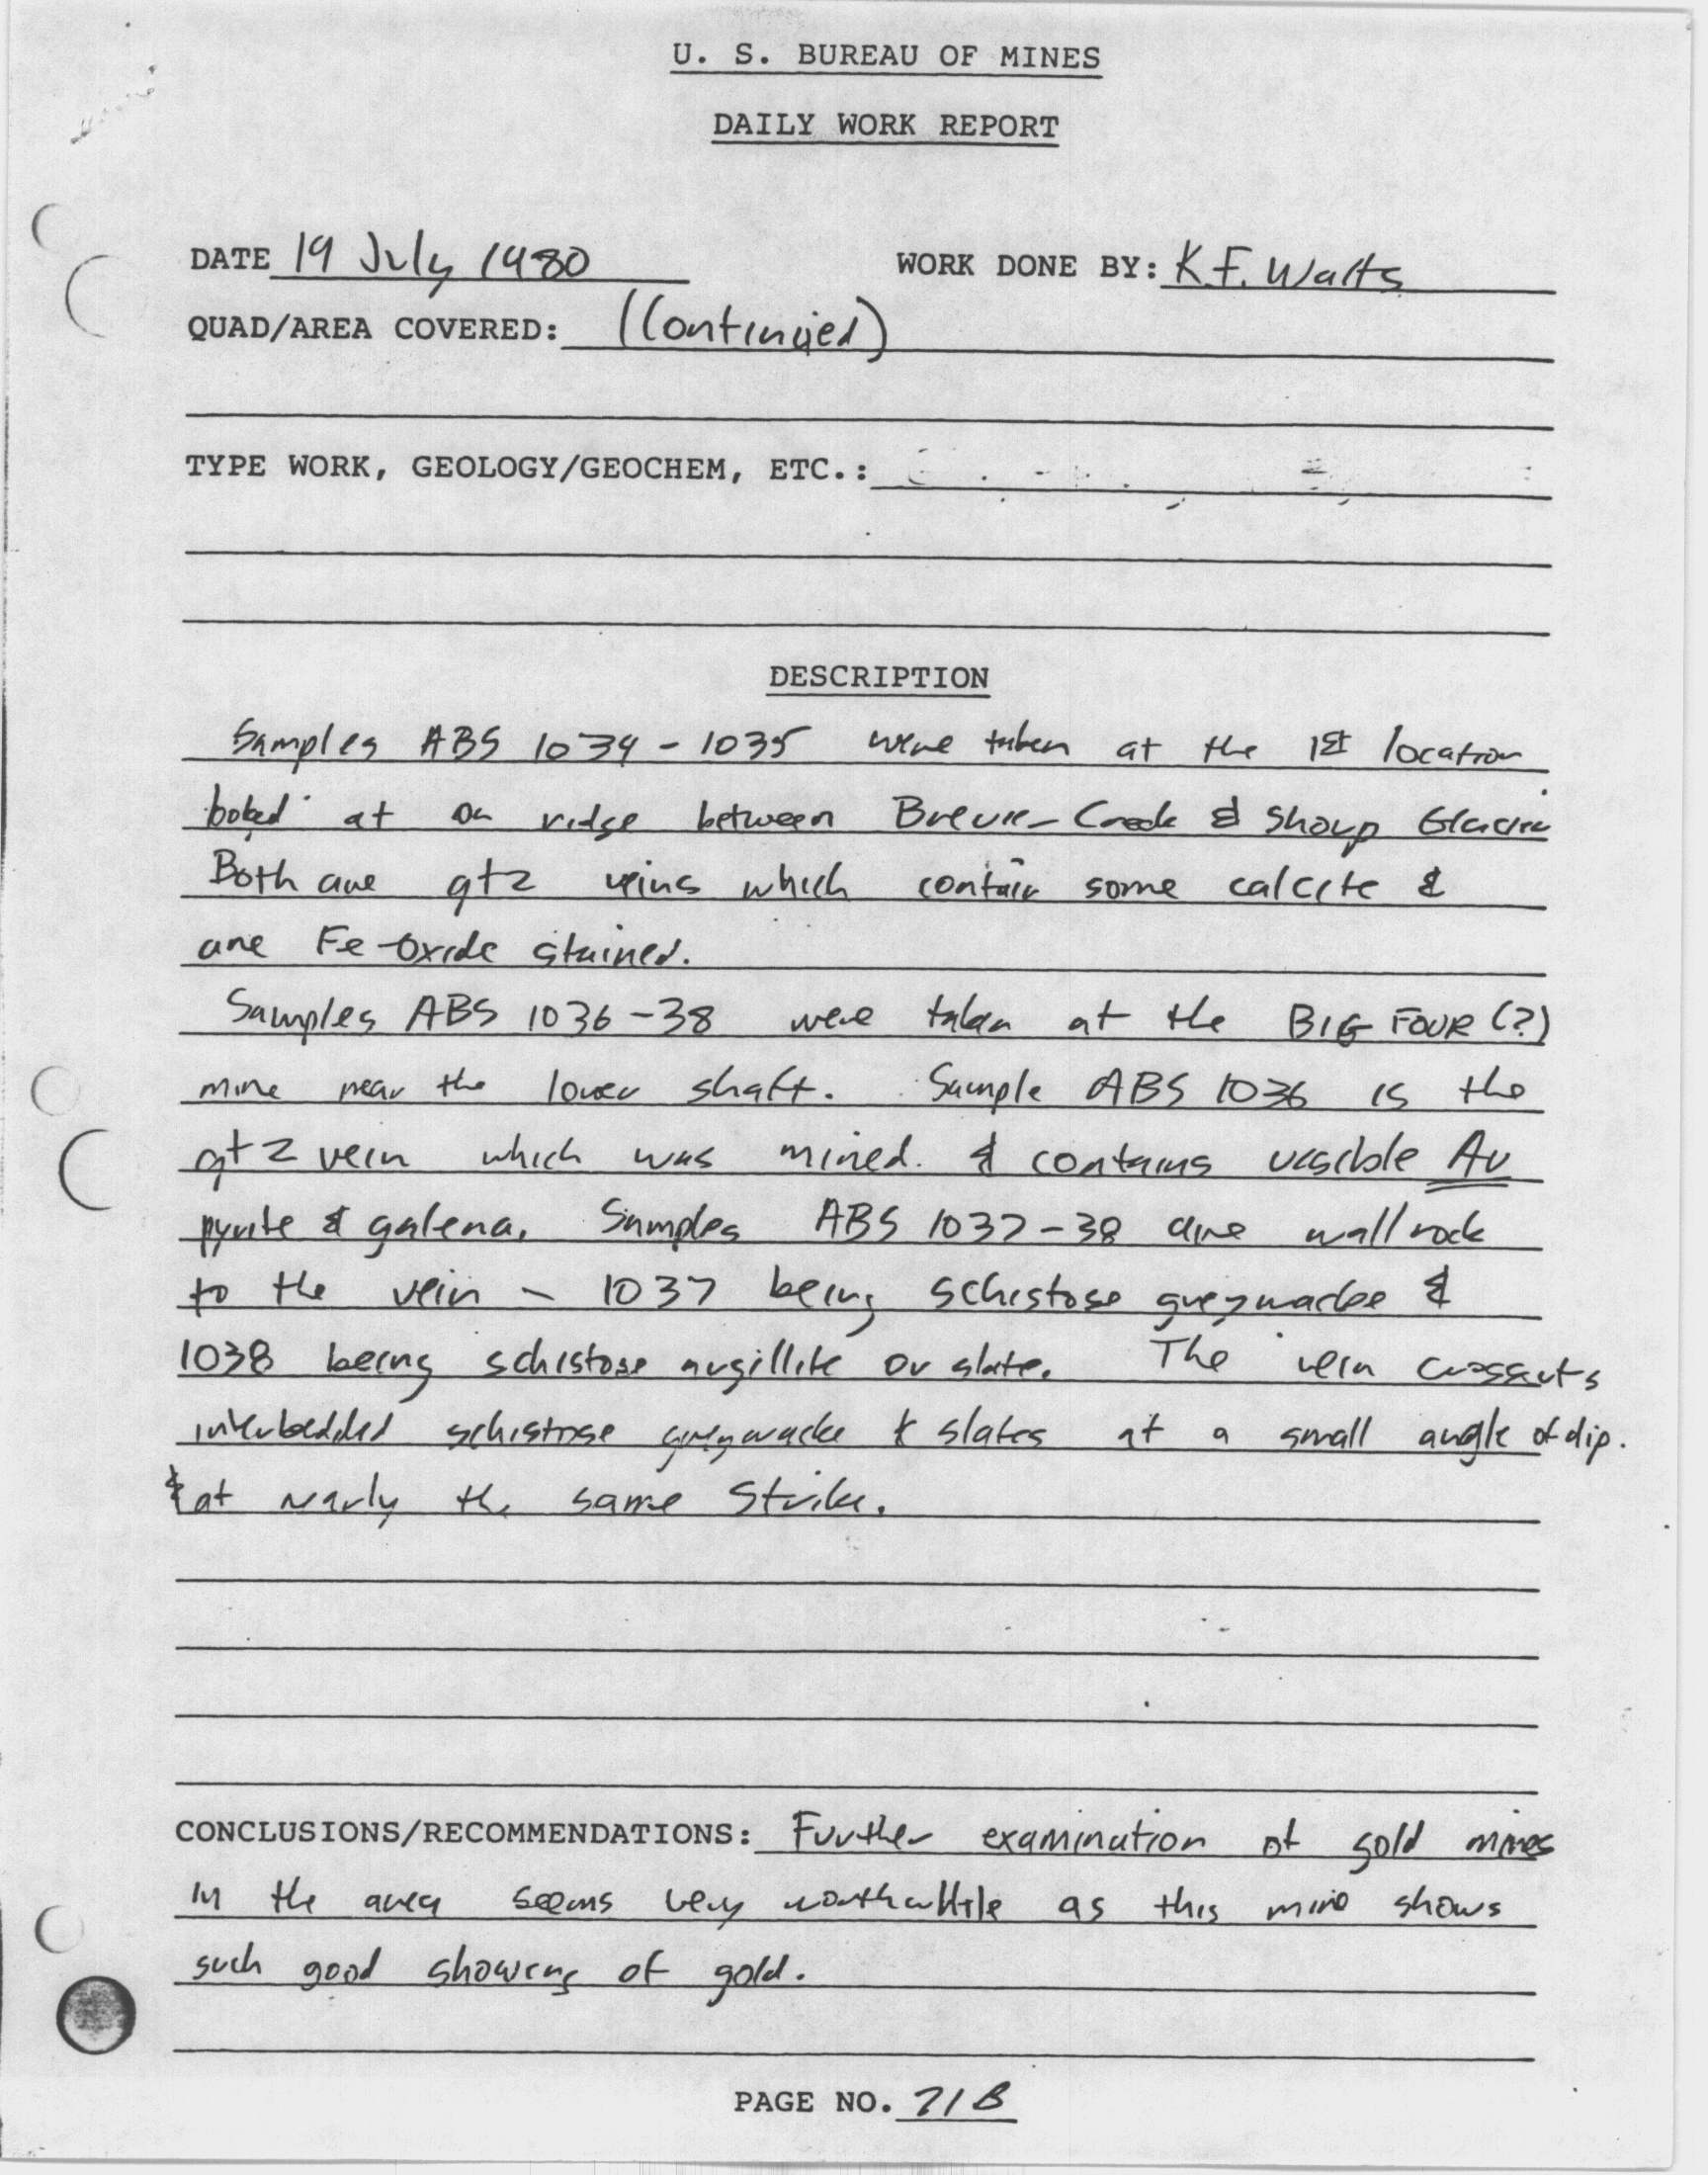 U. S. BUREAU OF MINES
DAILY WORK REPORT
DATE 19 July 1980 WORK DONE BY: K.F. Watts
QUAD/AREA COVERED: (Continued)
TYPE WORK, GEOLOGY/GEOCHEM, ETC.:
DESCRIPTION
Samples ABS 1034 - 1035 were taken at the 1st location
at on ridge between Creek & Shoup Glacier
Both are qtz veins which contain some calcite &
are Fe-Oxide stained.
Samples ABS 1036-38 were taken at the BIG FOUR (?)
mine near the lower shaft. Sample ABS 1036 is the
qtz vein which was mined. & contains visible Au
pyrite & galena. Samples ABS 1037-38 are wall rock
to the vein - 1037 being schistose greywacke &
1038 being schistose argillite or slate. The vein crosscuts
interbedded schistose greywacke & slates at a small angle of dip.
& at nearly the same Strike.
CONCLUSIONS/RECOMMENDATIONS: Further examination of gold mines
in the area seems very worthwhile as this mine shows
such good showing of gold.
PAGE NO. 71B